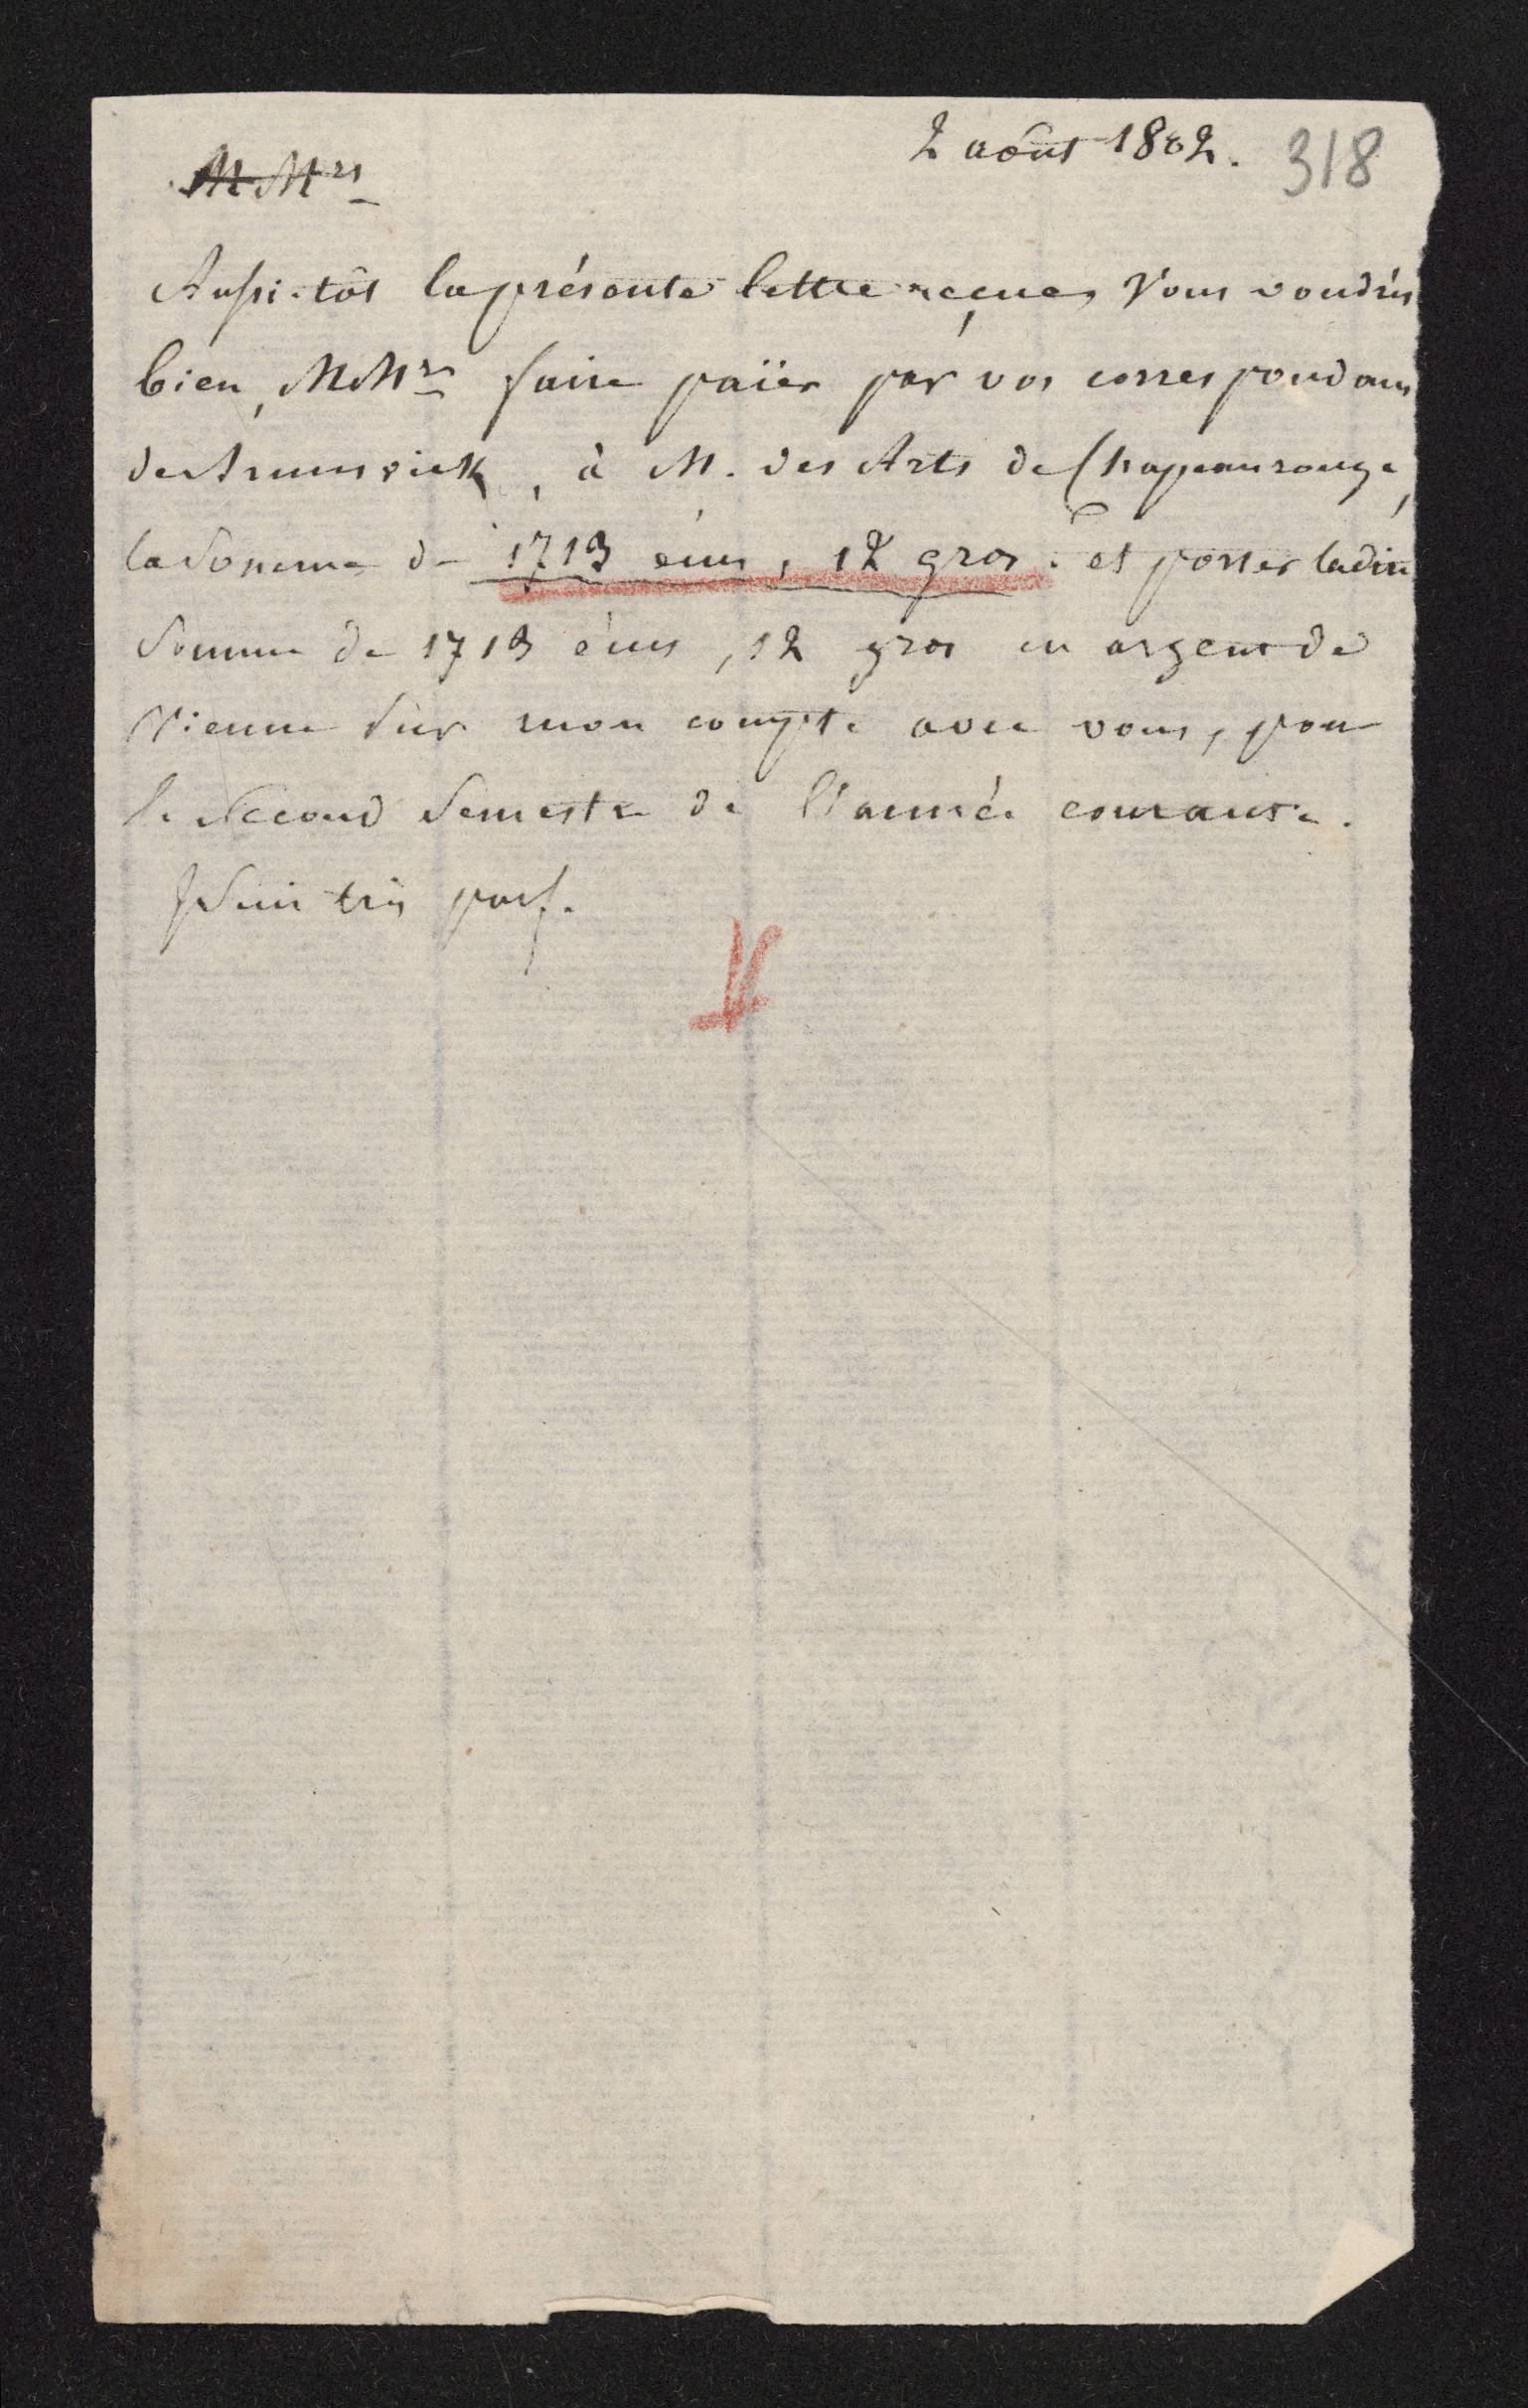 2 août 1802. 318
M Mrs
Aussi-tôt la présente lettre reçue, Vous voudrés
bien, MMrs faire païer par vos correspondans
de Brunsvick, à M. des Arts de Chapeaurouge,
la Somme de 1713 écus, 12 gros. et porter ladite
Somme de 1713 écus, 12 gros en argent de
Vienne sur mon compte avec vous, pour
le Second Semestre de l'année courante.
Je Suis très parf.